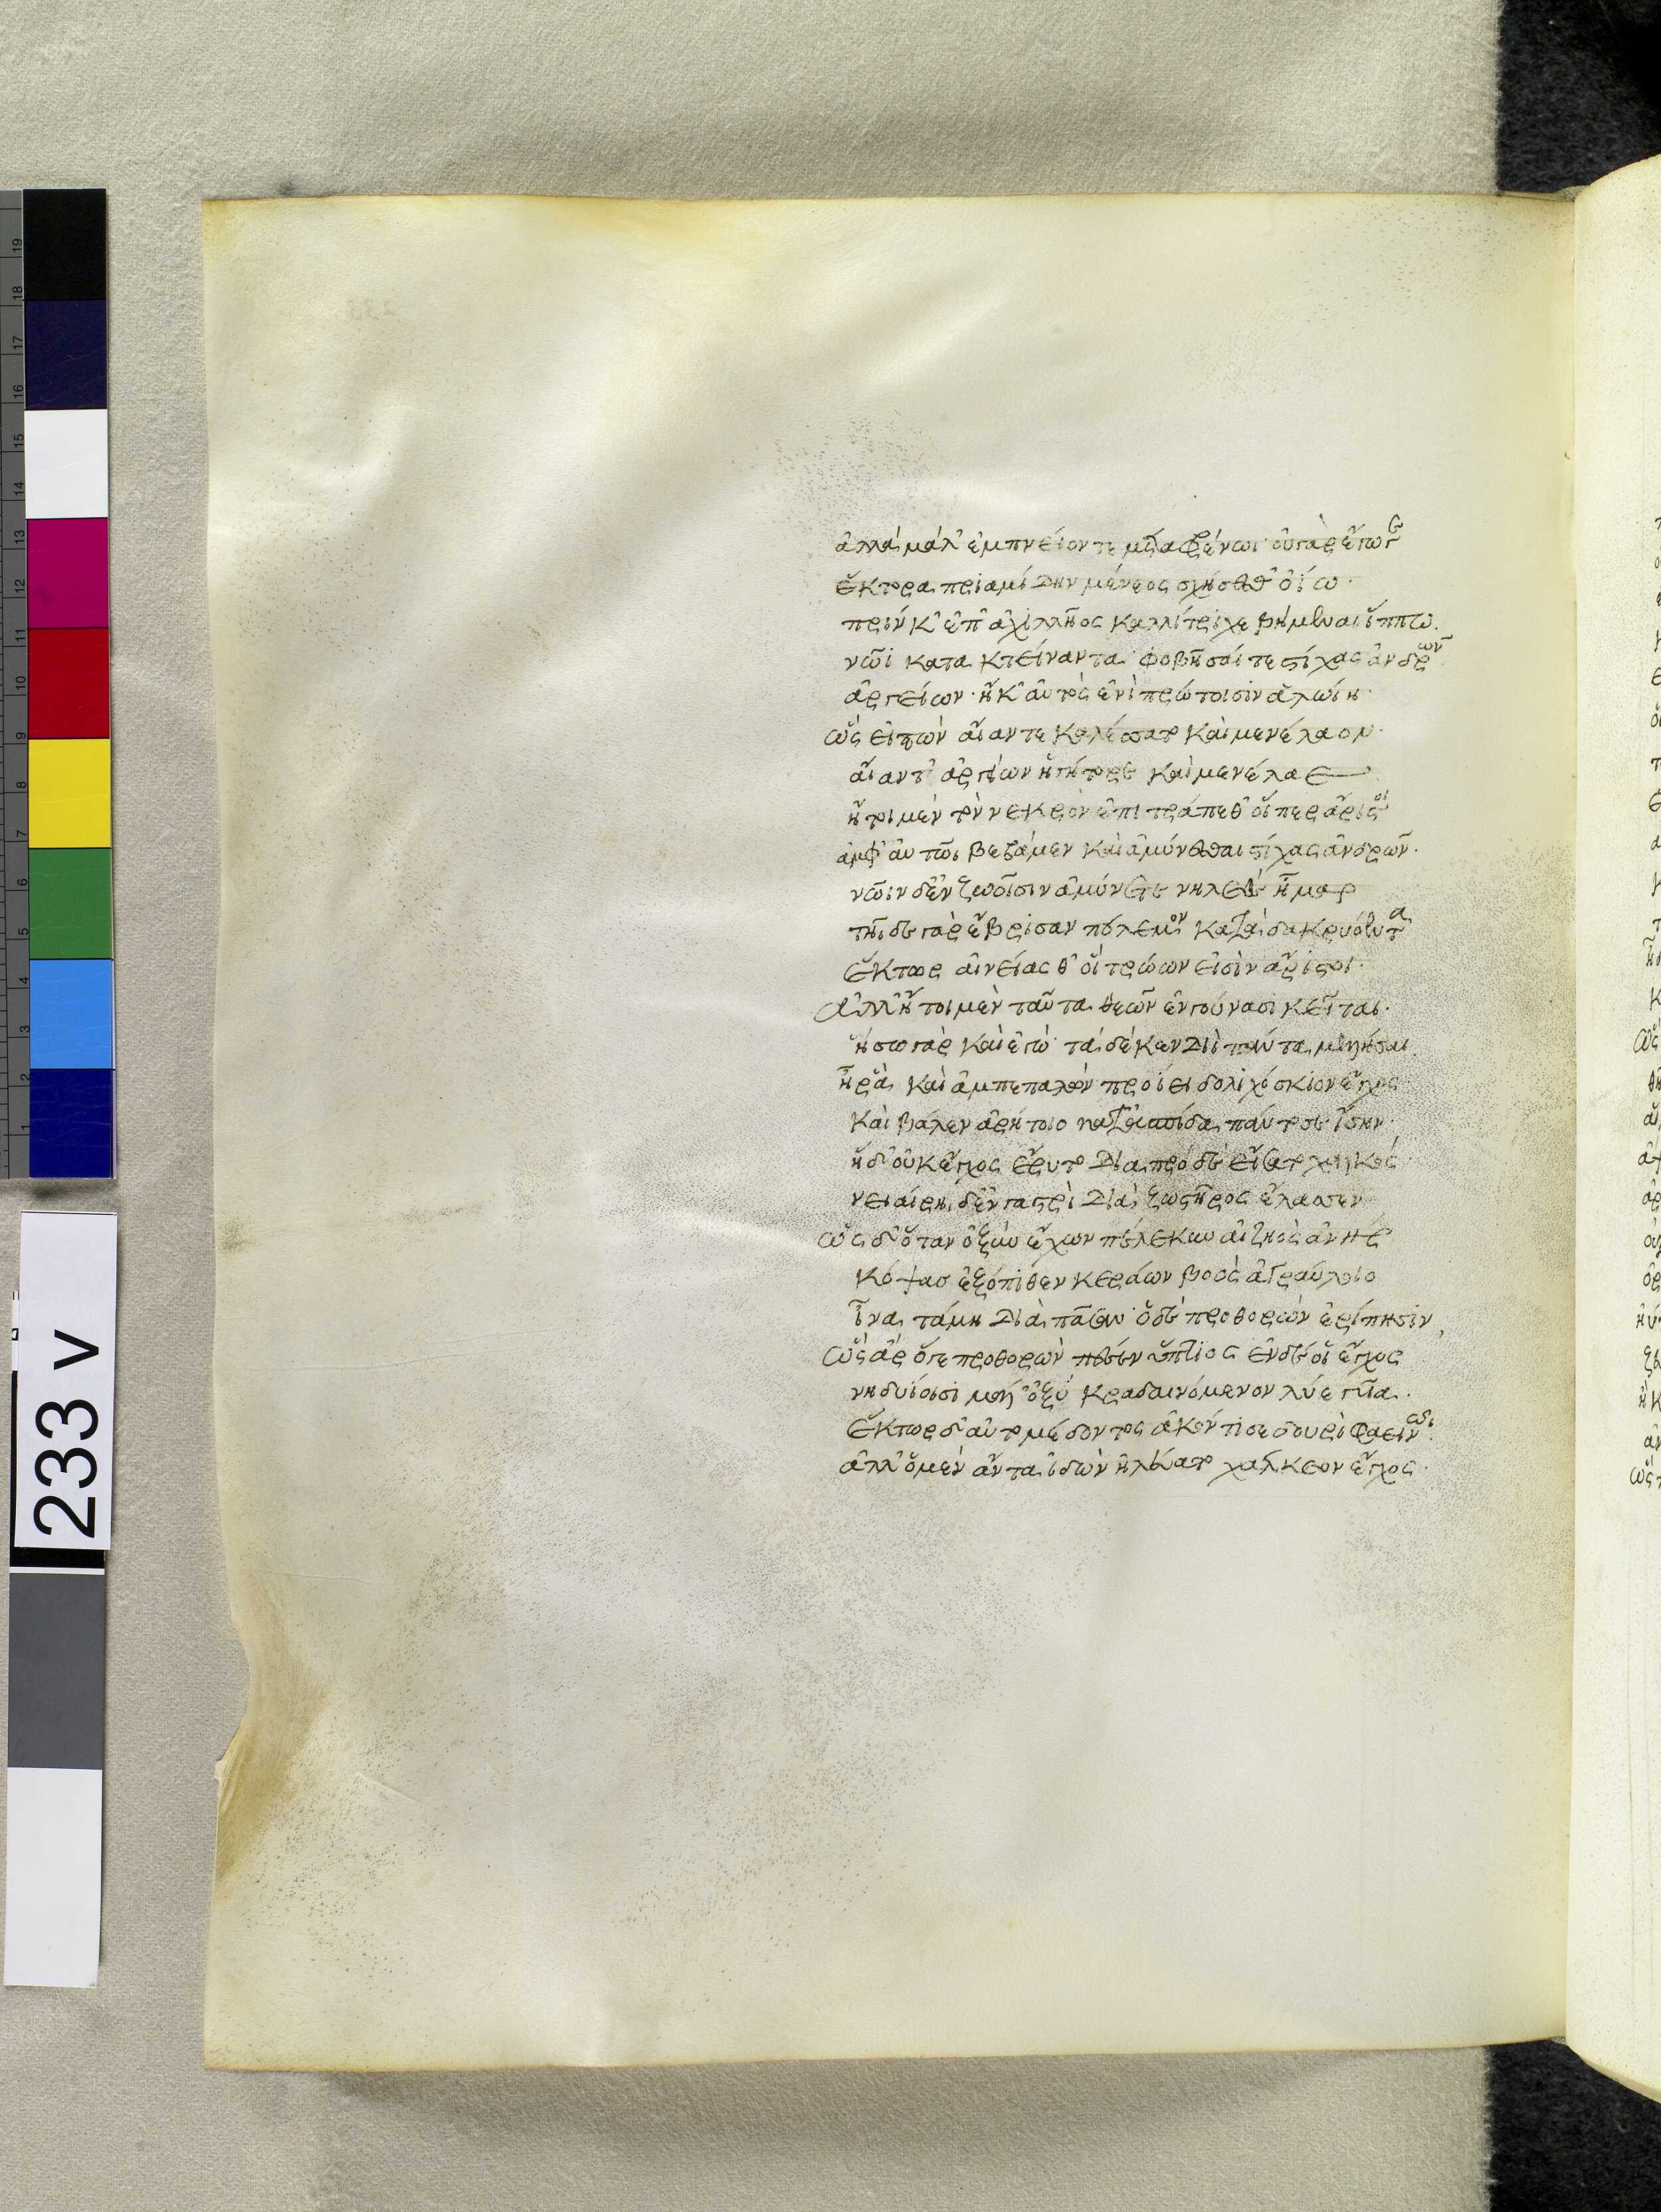 ἀλλὰ μάλ' ἐμπνείοντε μεταφρένωι· οὐ γὰρ ἔγωγε
ἕκτορα πριαμίδην μένεος σχήσεσθ' ὀΐω·
πρίν κ' ἐπ' ἀχιλλῆος καλλίτριχε βήμεναι ἵππω.
νῶϊ κατακτείναντα φοβῆσαί τε στίχας ἀνδρῶν
ἀργείων· ἤ κ' αὐτὸς ἐνὶ πρώτοισιν ἁλώιη·
ὣς εἰπὼν αἴαντε καλέσσατο καὶ μενέλαον·
αἴαντ' ἀργείων ἡγήτορε καὶ μενέλαε
ἤτοι μὲν τὸν νεκρὸν ἐπιτράπεθ' οἵπερ ἄριστοι
ἀμφ' αὐτῶι βεβάμεν καὶ ἀμύνεσθαι στίχας ἀνδρῶν·
νῶϊν δὲ ζωοῖσιν ἀμύνετε νηλεὲς ἦμαρ
τῆιδε γὰρ ἔβρισαν πόλεμον κάτα δακρυόεντα
ἕκτωρ αἰνείας θ' οἳ τρώων εἰσὶν ἄριστοι·
ἀλλ' ἤτοι μὲν ταῦτα θεῶν ἐν γούνασι κεῖται·
ἥσω γὰρ καὶ ἐγώ· τὰ δέ κεν Διὶ πάντα μελήσει
ἦ ῥα καὶ ἀμπεπαλὼν προΐει δολιχόσκιον ἔγχος
καὶ βάλεν ἀρήτοιο κατ' ἀσπίδα πάντοσε ἴσην·
ἡ δ' οὐκ ἔγχος ἔρυτο διαπρὸ δὲ εἴσατο χαλκός·
νειαίρηι δ' ἐν γαστρὶ διὰ ζωστῆρος ἔλασσεν
ὡς δ' ὅταν ὀξὺν ἔχων πέλεκυν αἰζηὸς ἀνὴρ
κόψας ἐξόπιθεν κεράων βοὸς ἀγραύλοιο
ἵνα τάμηι διὰ πᾶσαν· ὃ δὲ προθορὼν ἐρίπηισιν
ὣς ἄρ' ὅ γε προθορὼν πέσεν ὕπτιος ἐν δέ οἱ ἔγχος
νηδυίοισι μάλ' ὀξὺ κραδαινόμενον λύε γυῖα·
ἕκτωρ δ' αὐτομέδοντος ἀκόντισε δουρὶ φαεινῶι·
ἀλλ' ὁ μὲν ἄντα ἰδὼν ἠλεύατο χάλκεον ἔγχος·
233 v